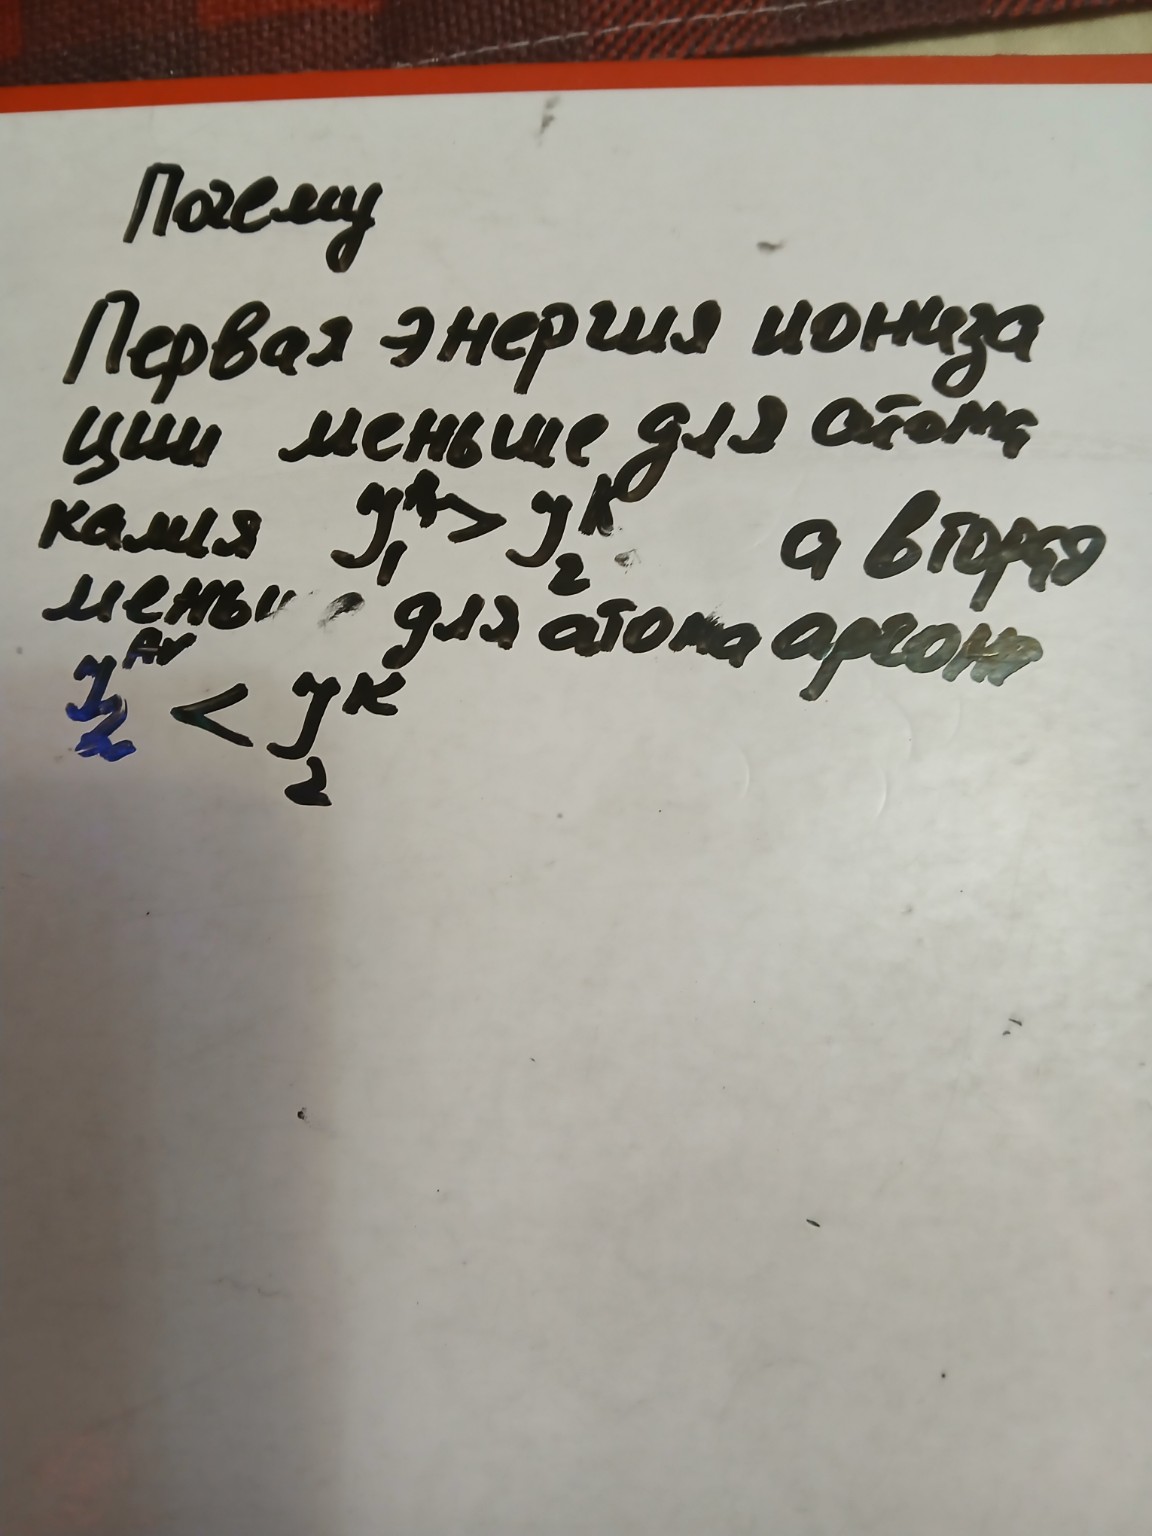 Почему
Первая энергия иониза
ции меньше для атома
калия У₁ > У₂ᴷ а вторая
для атома аргона
У₂ᴬʳ < У₂ᴷ